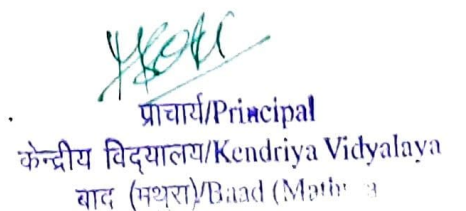 प्राचार्य/Principal
केन्द्रीय विद्यालय/Kendriya Vidyalaya
बाद (मथुरा)/Baad